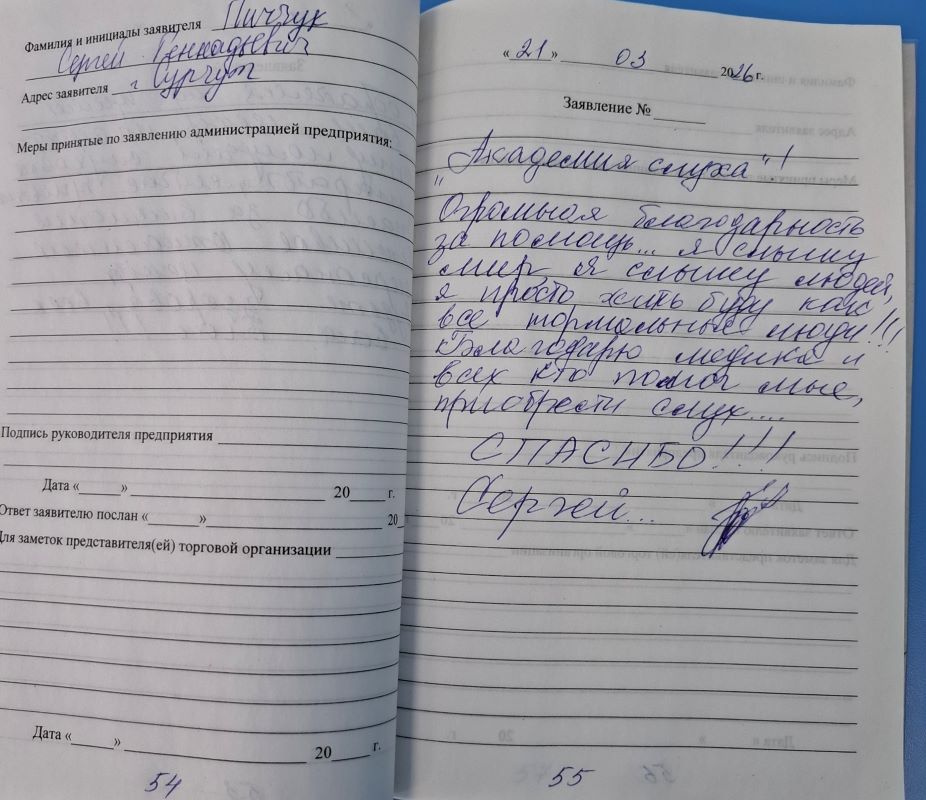 Фамилия и инициалы заявителя Пичзук
Сергей Геннадьевич
Адрес заявителя г Сургут
Меры принятые по заявлению администрацией предприятия:
Подпись руководителя предприятия
Дата «» 20 г.
Ответ заявителю послан «» 20
Для заметок представителя(ей) торговой организации
Дата «» 20 г.
54
«21» 03 2026 г.
Заявление №
"Академия слуха"!
Огромная благодарность
за помощь... я слышу
мир, я слышу людей,
я просто жить буду как
все нормальные люди!!!
Благодарю медика и
всех кто помог мне,
приобрести слух....
СПАСИБО!!!
Сергей...
55